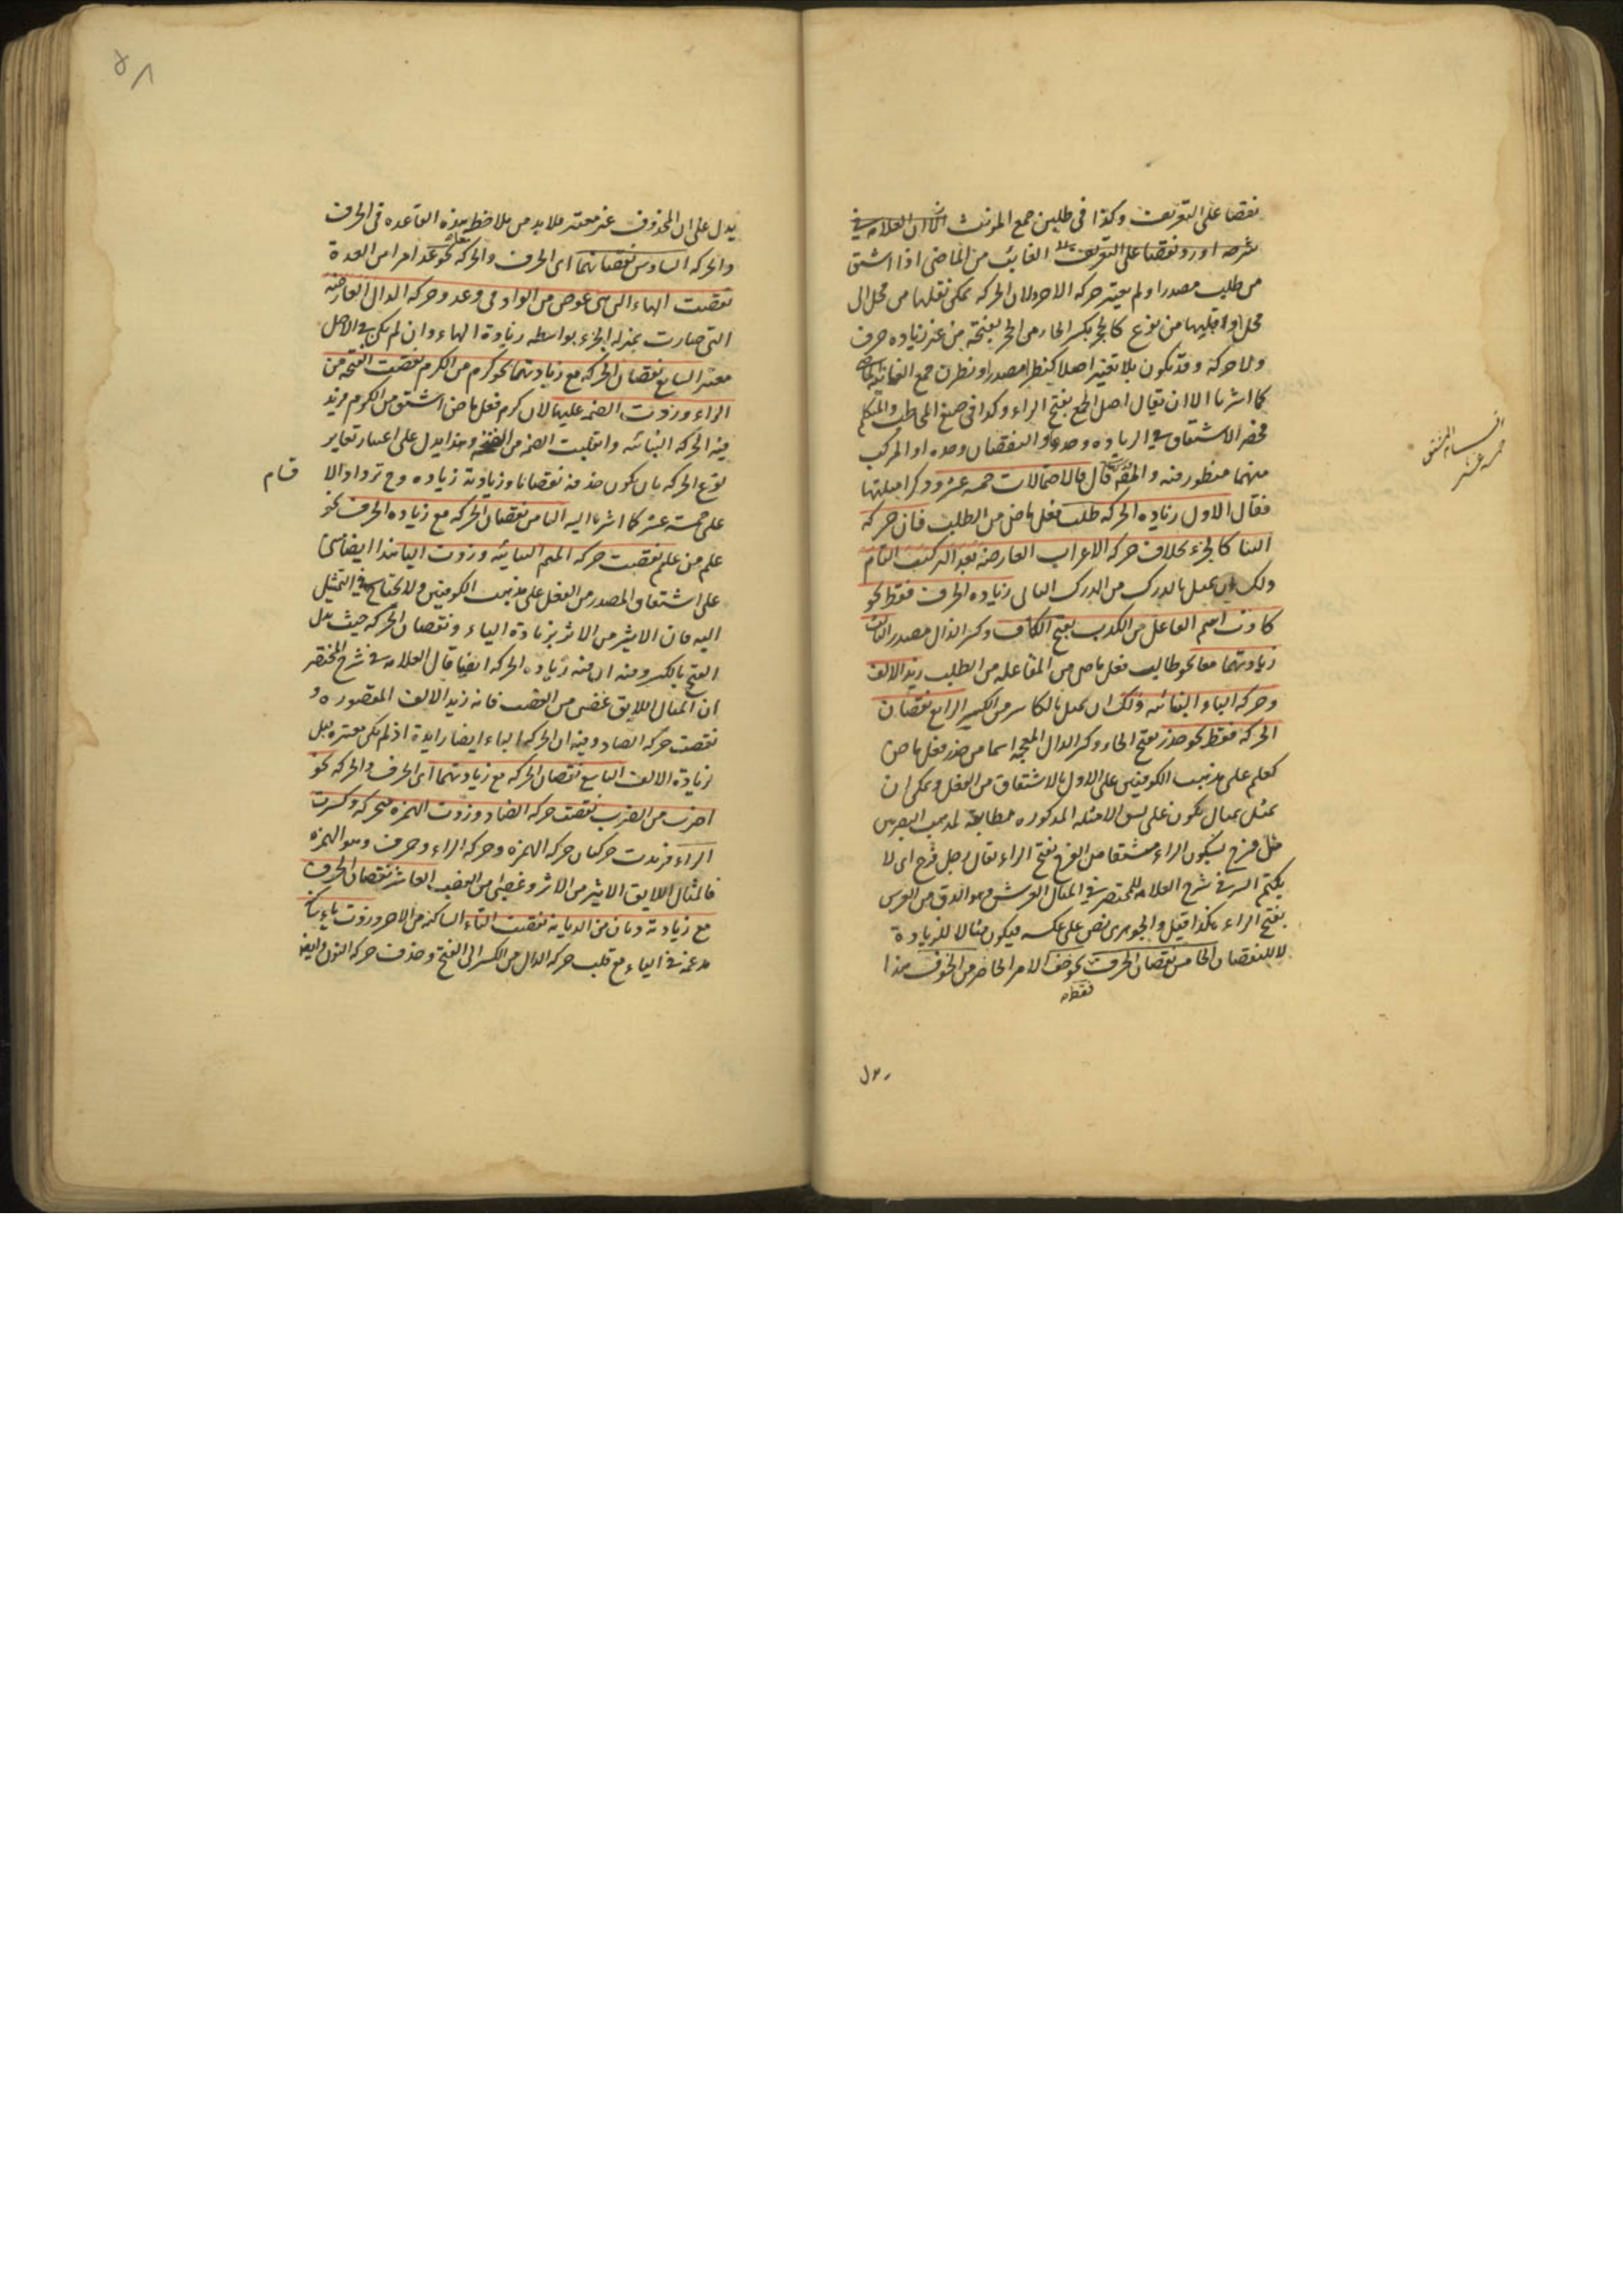 نقضا على التعريف وكذا في طلبن جمع المونث الا ان العلامه في
شرحه اورد نقضا على التعريف الغائب من الماضى اذا اشتق
من طلب مصدرا ولم يعتبر حركه الاخر ولان الحركه يمكن نقلها من محل الى
محل او قلبها من نوع كالحجر بكسر الحاء من الحجر بفتحه من غير زياده حرف
ولا حركة وقد تكون بلا تغير اصلا كنظر مصدرا ونظرن جمع الغائبه
كما اشرنا الا ان يقال اصل الجمع بفتح الراء وكذا في صيغ المخاطب والمتكلم
فحصر الاشتقاق في الزياده وحدها والنقصان وحده او المركب
منهما منظور فيه قال فالاحتمالات خمسه عشر وذكر امثلتها
فقال الاول زياده الحركه طلب فعل ماض من الطلب فان حركه
البنا كالجزء بخلاف حركه الاعراب العارضه بعد التركيب التام
ولك ان تمثل بالدرك من الدرك الثانى زياده الحرف فقط نحو
كاذب اسم الفاعل من الكذب بفتح الكاف وكسر الذال مصدر الثالث
زيادتهما معا نحو طالب فعل ماض من المفاعله من الطلب زيد الالف
وحركه الباء البنائيه ولك ان تمثل بالكاسر من الكسر الرابع نقصان
الحركه فقط نحو حذر بفتح الحاء وكسر الذال المعجمه اسما من حذر فعل ماض
كعلم على مذهب الكوفيين على الاول بالاشتقاق من الفعل ويمكن ان
يمثل بمثال يكون على الامثله المذكوره مطابقه لمذهب البصريين
مثل فرج بسكون الراء مشتقا من الفرج بفتح الراء يقال رجل فرج اى لا
يكتم السر في شرح العلامه للمختصر في المثال الفرش وهو ادق من الفرس
بفتح الراء هكذا قيل والجوهرى نص على عكسه فيكون مثالا للزيادة
لا للنقصان الخامس نقصان الحرف نحو خف الامر الحاضر من الخوف هذا
فقط
يدل
المشتق
خمسه عشر
يدل على ان المحذوف غير معتبر فلا بد من ملاحظه هذه القاعده في الحرف
والحركه السادس نقصانهما اى الحرف والحركه نحو عد امرا من العدة
نقصت الهاء التى هى عوض من الواو في وعد وحركه الدال العارضه
التى صارت بمنزله الجزء بواسطه زيادة الهاء وان لم يكن في الاصل
معتبر السابع نقصان الحركه مع زيادتهما نحو كرم من الكرم نقصت الفتحه من
الراء وزدت الضمه عليها لان كرم فعل ماض اشتق من الكرم فزيد
فيه الحركه البنائيه وانقلبت الضمه من الفتحه وهذا يدل على اعتبار تغاير
نوع الحركه بان يكون حذفه نقصانا وزيادته زياده وح ترداد الا
قسام
على خمسة عشر كما اشرنا اليه الثامن نقصان الحركه مع زياده الحرف نحو
علم من علم نقصت حركه الميم البنائيه وزدت اليا هذا ايضا مبنى
على اشتقاق المصدر من الفعل على مذهب الكوفيين ولا يحتاج في التمثيل
اليه فان الاثير من الاثر بزيادة الياء ونقصان الحركه حيث بدل
الفتح بالكسر وفيه ان فيه زياده الحركه ايضا قال العلامه في شرح المختصر
ان المثال اللايق غضبى من الغضب فانه زيد الالف المقصوره و
نقصت حركه الضاد وفيه ان الحركه الباء ايضا زايدة اذ لم يكن معتبره قبل
زيادة الالف التاسع نقصان الحركه مع زيادتهما اى الحرف والحركه نحو
اضرب من الضرب نقصت حركه الضاد وزدت الهمزه متحركه وكسرت
الراء فزيدت حركتان حركه الهمزه وحركه الراء وحرف وهو الهمزه
فالمثال اللايق الاثير من الاثر وغضبى من الغضب العاشر نقصان الحرف
مع زيادته ديان من الديانه نقصت التاء الساكنه من الاخر وزدت ياء ساكنه
مدغمه في الياء مع قلب حركه الدال من الكسر الى الفتح وحذف حركه النون وايضا